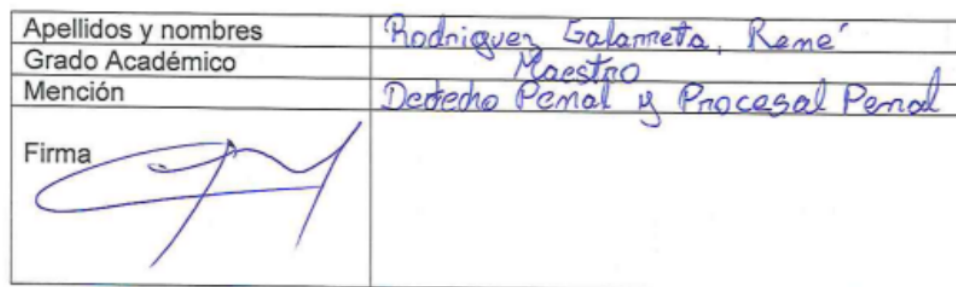 Apellidos y nombres Rodriguez Galarreta, René
Grado Académico Maestro
Mención Derecho Penal y Procesal Penal
Firma